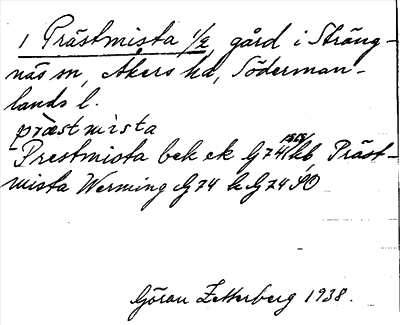 1 Prästmista 1/2, gård i Sträng-
näs sn, Åkers hd, Söderman-
lands l.
[præstmista
Prestmista bek ek G74 kb, Präst-
mista Werming G74 k G74 SO
Göran Zetterberg 1938.